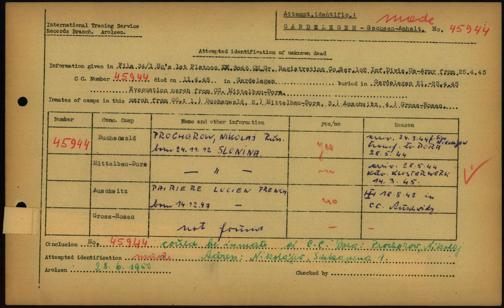 International Tracing Service
Records Branch. Arolsen.
Attempt.identific.: made
GARDELEGEN - Sachsen-Anhalt. No. 45944
Attempted identification of unknown dead
Information given in File 54/1 Nr's 1st Platoon Gr. Registration Co, Ser. 102 Inf. Divis. Us-Army from 25.4.45
C.C. Number 45944 died on 13.4.45 in Gardelegen Buried in Gardelegen 21.-25.4.45
Evacuation march from CC. Mittelbau-Dora.
Inmates of camps in this march from CC. : 1.) Buchenwald, 2.) Mittelbau-Dora, 3.) Auschwitz, 4.) Gross-Rosen.
Number Conc. Camp Name and other information yes/no Reason
45944 Buchenwald PROCHOROW, NIKOLAJ
born 24.12.12 SLONINA. yes
transf. to DORA
28.5.44
Mittelbau-Dora - " - 28.5.44
14.3.45.
Auschwitz PAIRIERE LUCIEN French,
born 14.12.97 no 18.8.42 in
CC. Auschwitz
Gross-Rosen not found - -
Conclusion No. 45944 could be inmate of C.C. Dora: Prochorow, Nikolaj
Attempted identification made.
Arolsen 28.6.1950 Checked by